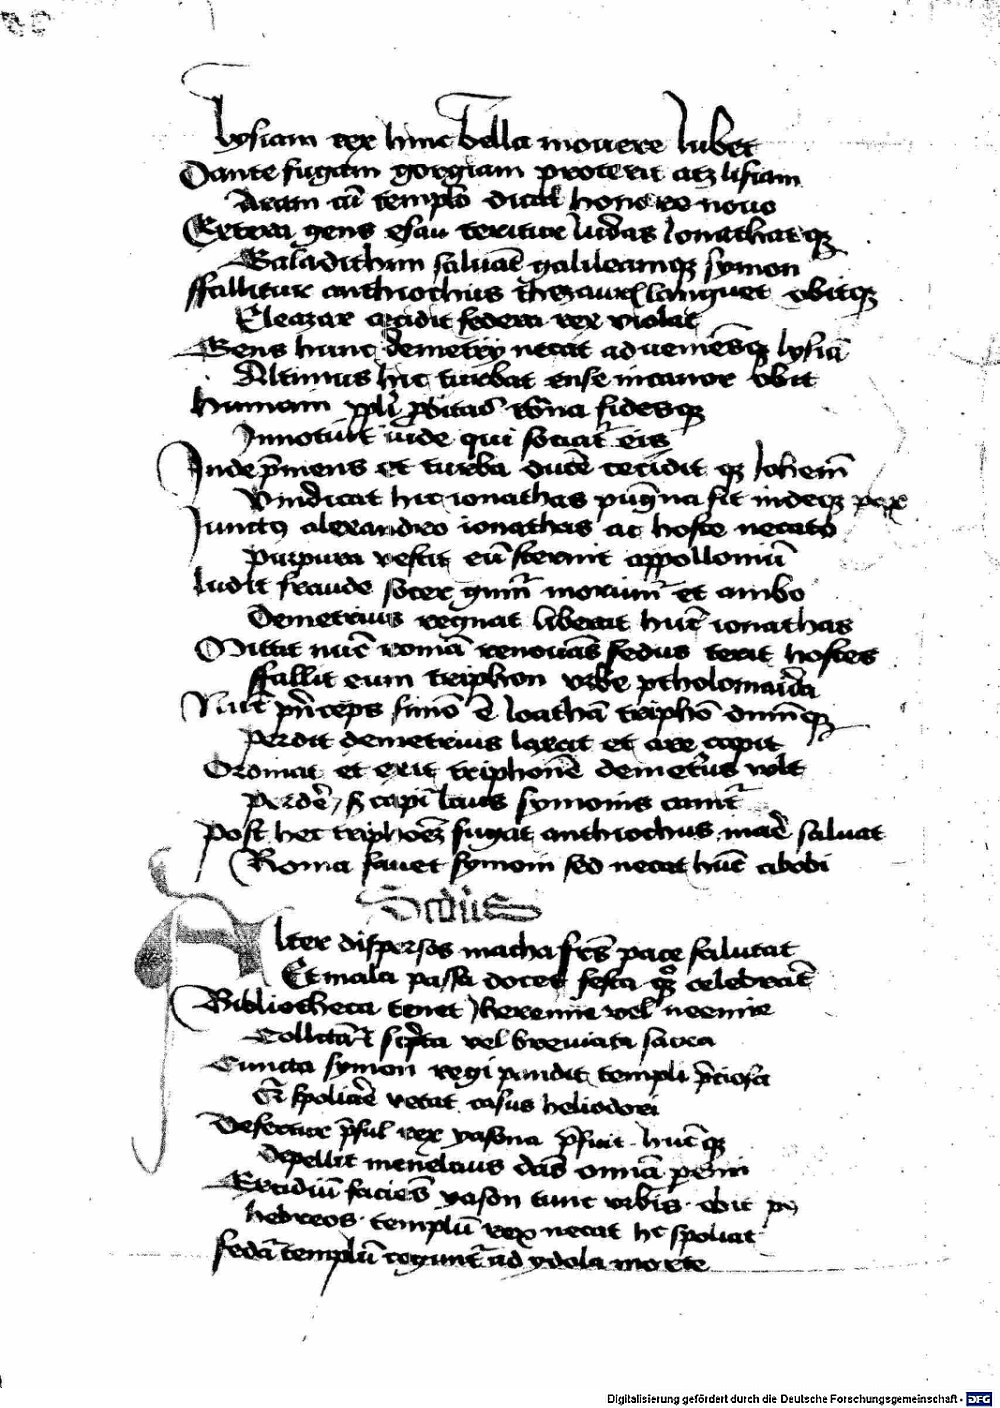 lysiam rex hinc bella mouere lubet
Dante fugam gorgiam proterit atqꝫ lisiam
Aram cū templo dicat honore nouo
Extera gens esau teritur iudas Ionathasqꝫ
Galadithim saluāt galileamqꝫ symon
ffallitur anthiochus languet obitqꝫ
Eleazar accidit federa rex violat
Gens hunc demetrij necat aduemēsqꝫ lysiā
Altimus hic turbat ense nicanor obit
humani ppli ꝓbitas fidesqꝫ
Innotuit iude qui sociat eis
Inde p̄mens et turba ducē cecidit qꝫ Iohem̄
Vindicat hic ionathas pugna fit indeqꝫ pax
Junctꝰ alexandro ionathas ac hoste necato
purpura vestit eū sternit appolloniū
ludit fraude socer et ambo
Demetrius regnat liberat hūc ionathas
Mittit nūc romā renouās fedus terit hostes
ffallit eum triphon vrbe ptholomaida
Nūc p̄nceps simō ē triphō
perdit demetrius et arce capit
Ordinat et erit triphonē demetriꝰ vult
perdē capi laus symonis
post hec fugat anthiochus saluat
Roma fauet symoni sed necat hūc abobi
Scd̄us
Alter dispersos macha fr̄es pace salutat
Et mala passa docet festa qꝫ celebrāt
Bibliotheca tenet Iheremie vel neemie
vel breuiata sacra
Cuncta symon regi pandit templi p̄ciosa
spoliare vetat casus heliodori
Defertur p̄sul rex yasona p̄ficit hūcqꝫ
depellit menelaus dās
Excidiū faciēs yason tunc vrbis obit
hebreos templū rex necat hic spoliat
feda templū ad ydola morte
Digitalisierung gefördert durch die Deutsche Forschungsgemeinschaft - DFG